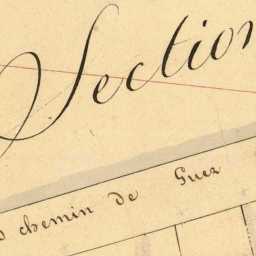 Section
chemin de Guez